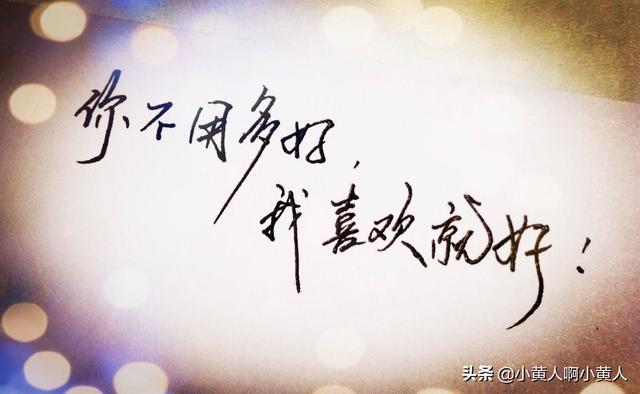 你不用多好，
我喜欢就好！
头条 @小黄人啊小黄人